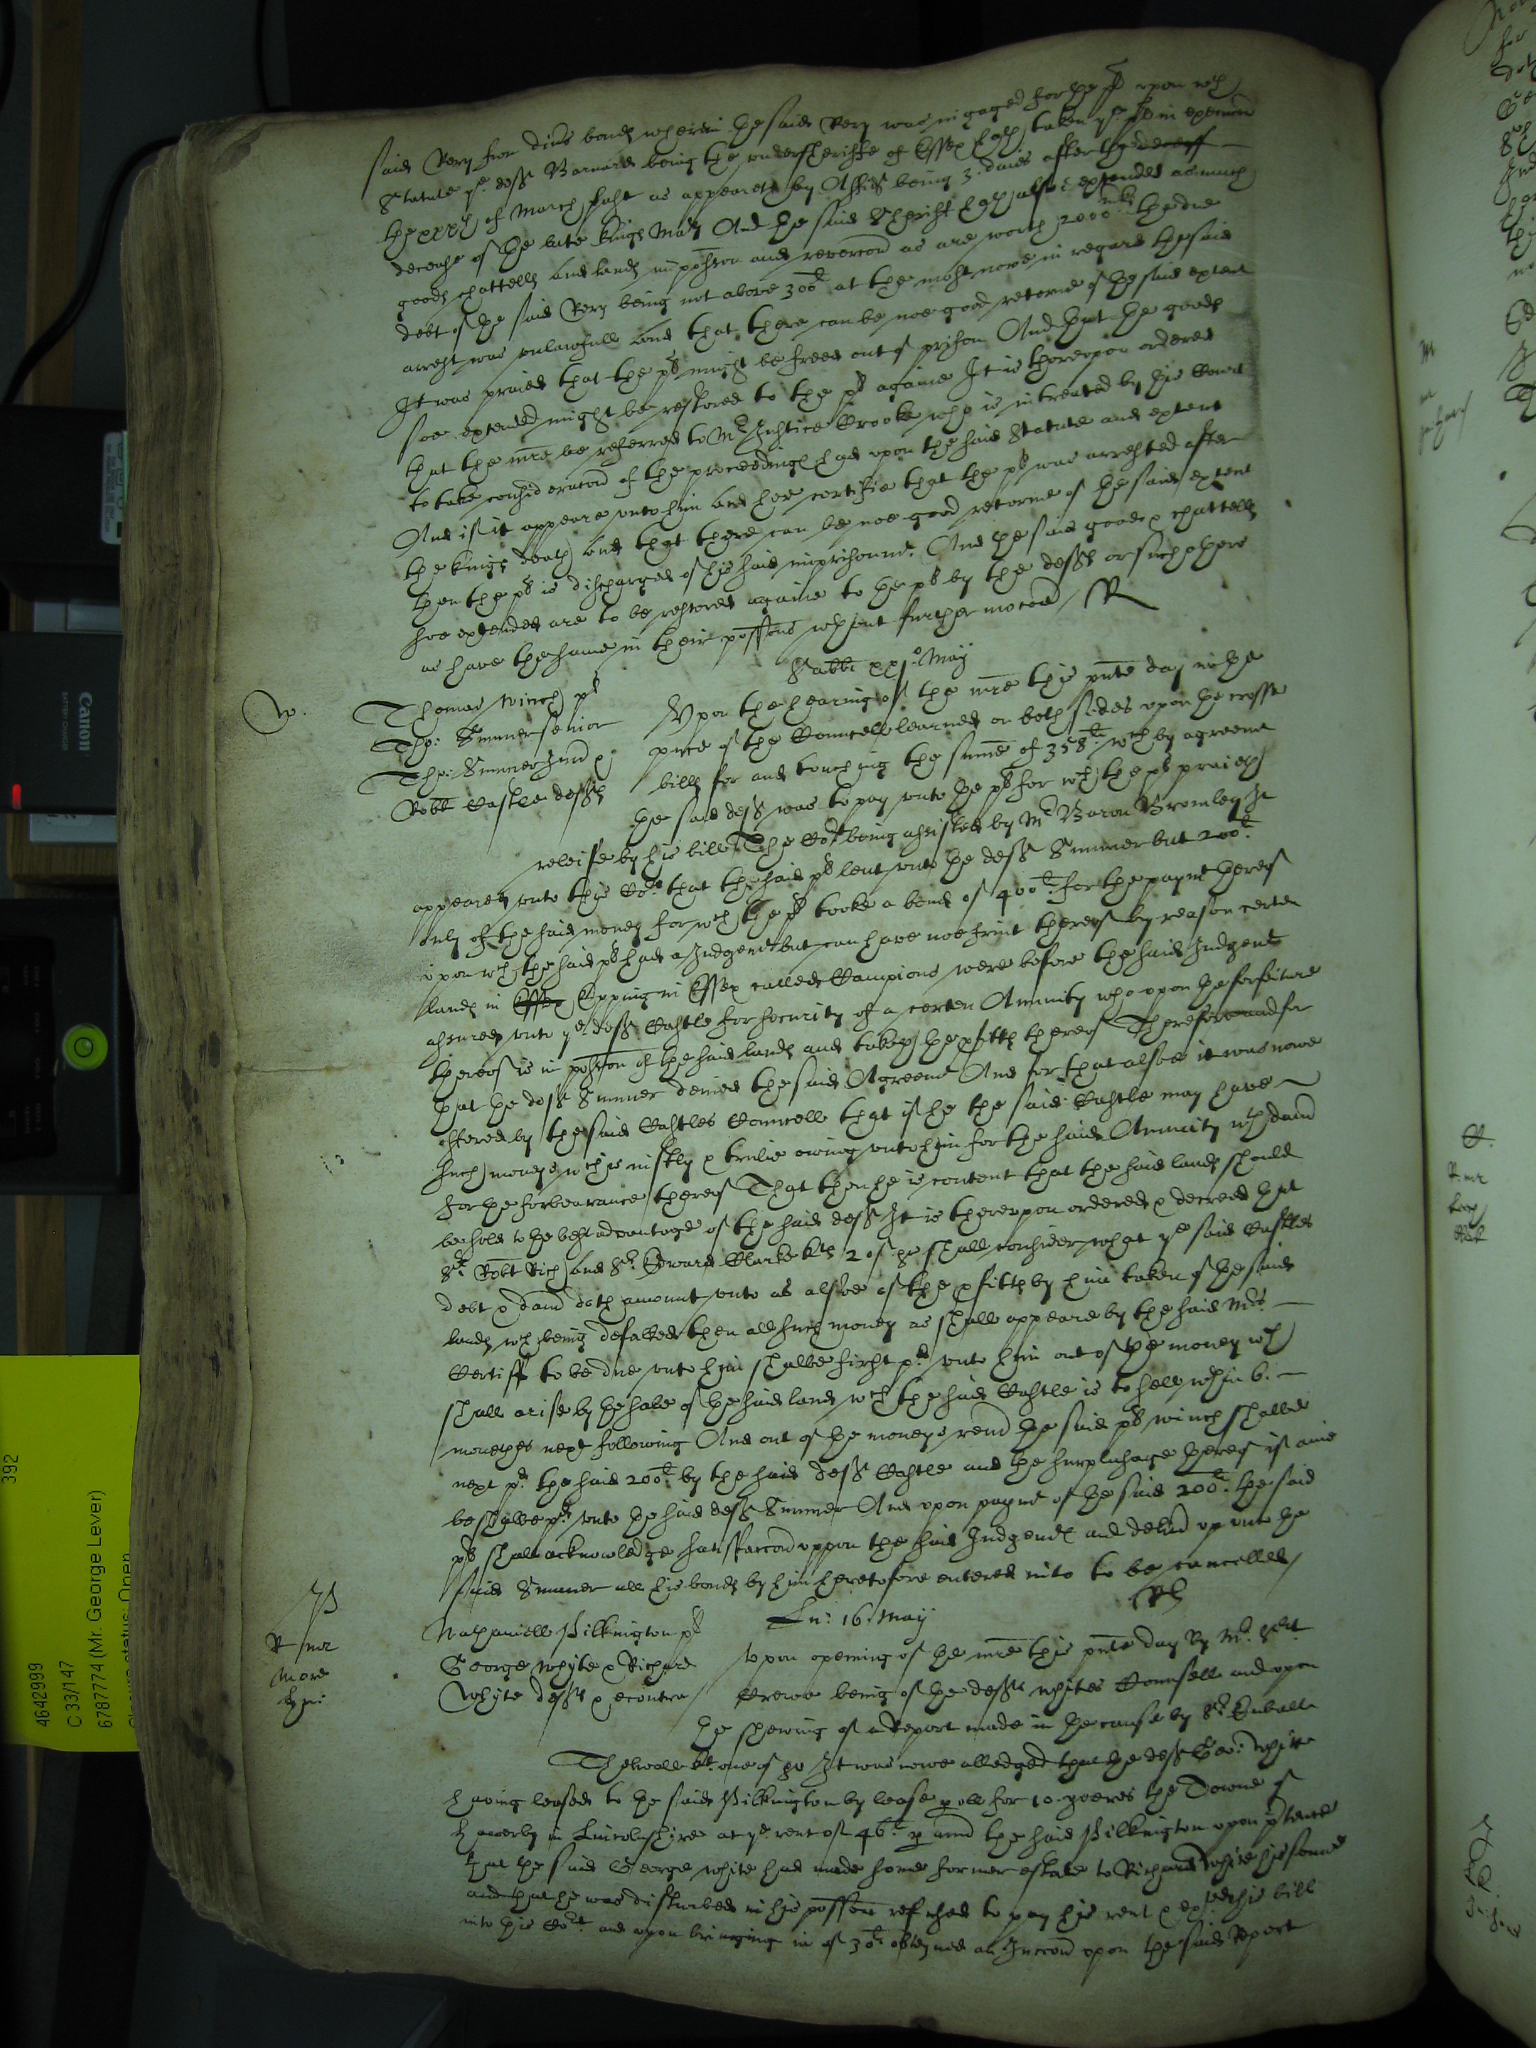 said Very from divers bonds wherein he said Very was ingaged for the pl upon wch
Statute ye deft Barnard being the undersheriffe of Essex hath taken ye pl in execucon
the xxxth of March last as appeareth by Affid being 3 daies after the
decease of the late kings Maty And the said Sheriff hath alsoe extended as much
goods chattells and lands in possion and revercon as are worth 2000 mks the due
debt of the said Very being not above 300li at the most nowe in regard the said
arrest was unlawfull and that there can be noe good retorne of the said extent
It was praied that the pl might be freed out of prison And that the goods
soe extended might be restored to the pl againe It is thereupon ordered
that the mre be referred to Mr Justice Crooke who is intreated by this Court
to take consideracon of the proceedings had upon the said Statute and extent
And if it appeare unto him and hee certifie that the pl was arrested after
the kings death and that there can be noe good retorne of the said extent
then the pl is discharged of his said imprisonmt And the said goods & chattells
soe extended are to be restored againe to the pl by the defts or such others
as have the same in their possions without further mocon
Sabbi xxjo May
Thomas Winch pl
Tho: Sumner senior
Tho: Sumner Jun &
Robt Castle defts
Upon the hearing of the mre this pnte day in the
pnce of the Councell learned on both sides upon the crosse
bills for and touching the sume of 358li wch by agreemt
the said deft was to pay unto the pl for wch the pl praieth
releife by his bill The Cort being assisted by Mr Baron Bromley It
appeared unto this Cort that the said pl lent unto the deft Sumner but 200li
only of the said money for wch the pl tooke a bond of 400li for the paymt thereof
upon wch the said pl had a Judgemt but can have noe fruit thereof by reason certen
lands in Essex Epping in Essex called Campions were before the said Judgemt
assured unto ye deft Castle for security of a certen Annuity who upon the forfeiture
thereof is in possion of the said lands and taketh the pfitts thereof Therefore and for
that the deft Sumner denied the said Agreemt And for that alsoe it was nowe
offered by the said Castles Councell that if he the said Castle may have
such moneys wch is justly & trulie owing unto him for the said Annuity wth dam
for the forbearance thereof That then he is content that the said lands should
be sold to the best advantage of the said deft It is thereupon ordered & decreed that
Sr Robt Rich and Sr Edward Clarke kts 2 of ye shall consider what ye said Castles
debt & dam doth amount unto as alsoe of the pfitts by him taken of the said
lands wch being defalked then all such money as shall appeare by the said Mrs
Certiff to be due unto him shalbe first pd unto him out of the money wch
shall arise by the sale of the said lands wch the said Castle is to sell within 6
moneths next following And out of the moneys rem the said pl Winch shalbe
next pd the said 200li by the said deft Castle and the surplusage thereof if anie
be shalbe pd unto the said deft Sumner And upon paymt of the said 200li the said
pl shall acknowledge satisfaccon uppon the said Judgemt and deliv up unto the
said Sumner all his bonds by him heretofore entered into to be cancelled
W.
Lu: 16 Maij
R mr
More
Nathaniell Pilkington pl
George Whyte & Richard
Whyte defts & econtra
Upon opening of the mre this pnte day By Mr Srt
Crewe being of the defts Whites Counsell and upon
the shewing of a Report made in the cause by Sr Eubulle
Thelwall kt one of ye It was nowe alledged that the deft Geo: White
having leased to the said Pilkington by lease poll for 10 yeeres the Towne of
Hawerby in Lincolnshire at ye rent of 46li p ann the said Pilkington upon ptence
that the said George White had made some former estate to Richard White his sonne
and that he was disturbed in his possion refused to pay his rent & exhibited his bill
into this Cort and upon bringing in of 30li obteyned an Iniuccon upon the said Report
Canon
BATTERY CHARGER
392
4642999
C 33/147
6787774 (Mr. George Lever)
Closure status: Open